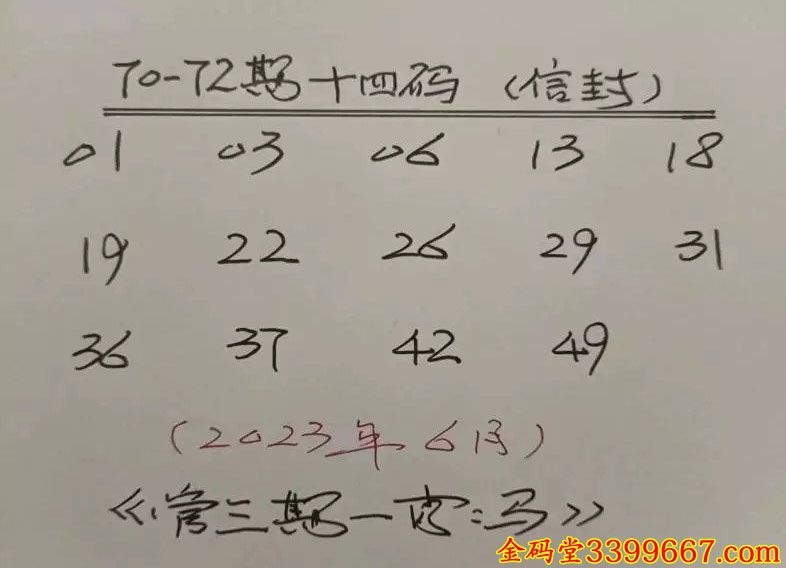 70-72期十四码（信封）
01 03 06 13 18
19 22 26 29 31
36 37 42 49
（2023年6月）
《管三期一产:马》
金码堂3399667.com